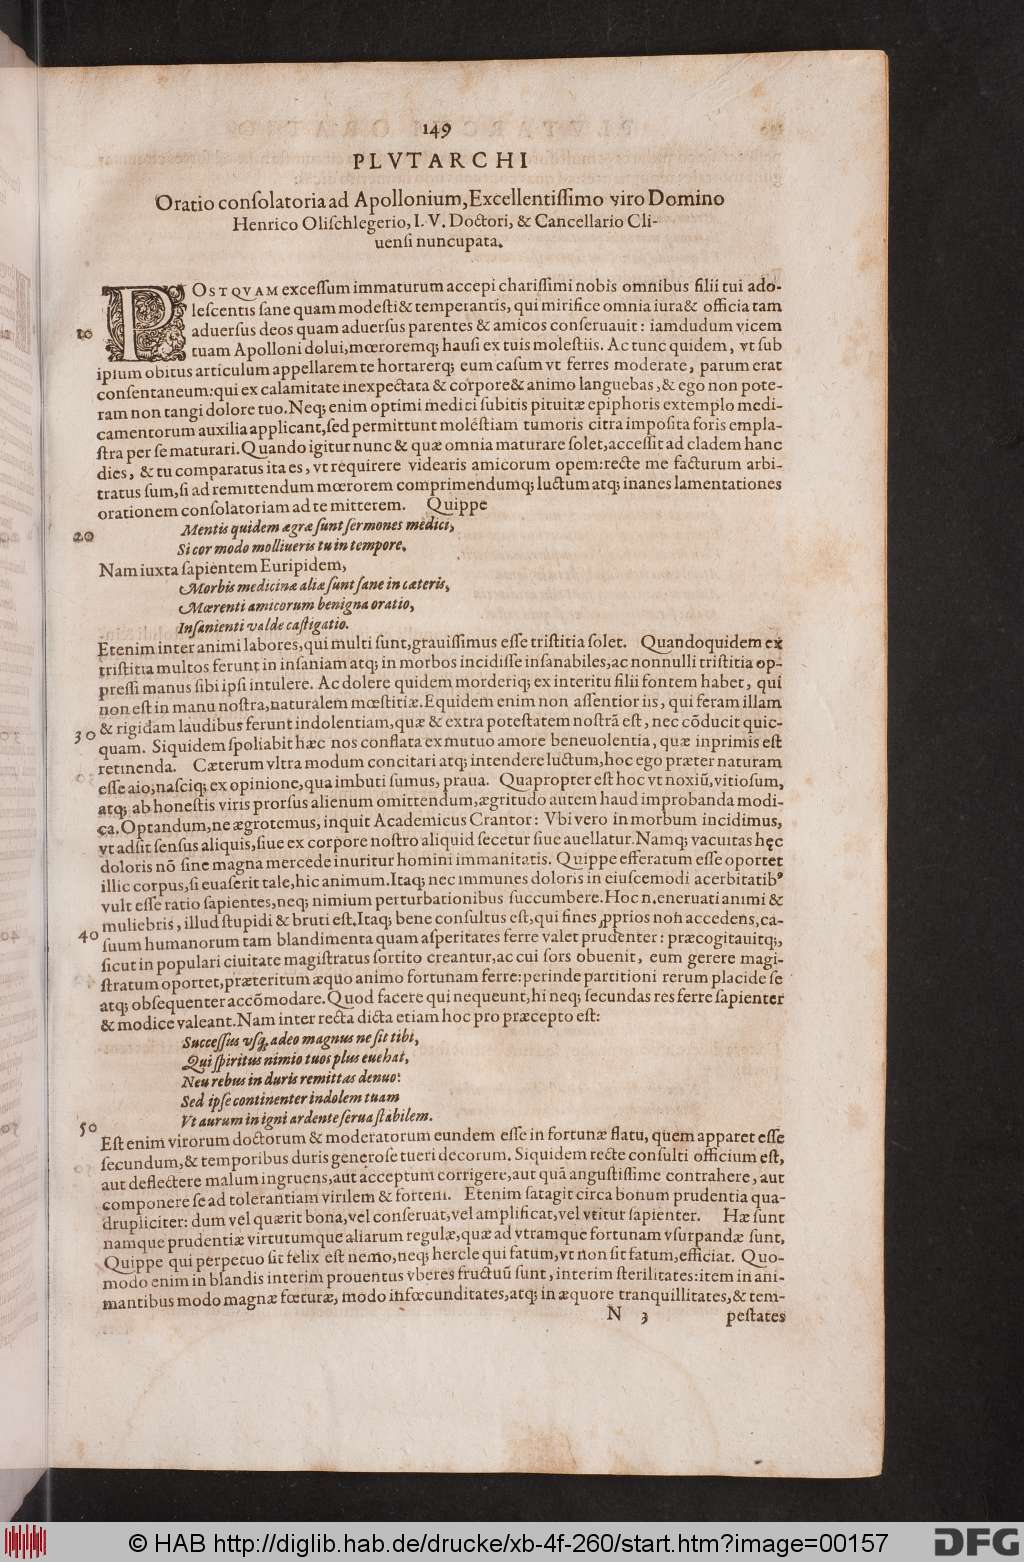 149
PLVTARCHI
Oratio conſolatoria ad Apollonium, Excellentiſſimo viro Domino
Henrico Oliſchlegerio, I. V. Doctori, & Cancellario Cli-
uenſi nuncupata.
POSTQVAM exceſſum immaturum accepi chariſſimi nobis omnibus filii tui ado-
leſcentis ſane quam modeſti & temperantis, qui mirifice omnia iura & officia tam
10 aduerſus deos quam aduerſus parentes & amicos conſeruauit: iamdudum vicem
tuam Apolloni dolui, mœroremq; hauſi ex tuis moleſtiis. Ac tunc quidem, vt ſub
ipſum obitus articulum appellarem te hortarerq; eum caſum vt ferres moderate, parum erat
conſentaneum: qui ex calamitate inexpectata & corpore & animo languebas, & ego non pote-
ram non tangi dolore tuo. Neq; enim optimi medici ſubitis pituitæ epiphoris extemplo medi-
camentorum auxilia applicant, ſed permittunt moleſtiam tumoris citra impoſita foris empla-
ſtra per ſe maturari. Quando igitur nunc & quæ omnia maturare ſolet, acceſſit ad cladem hanc
dies, & tu comparatus ita es, vt requirere videaris amicorum opem: recte me facturum arbi-
tratus ſum, ſi ad remittendum mœrorem comprimendumq; luctum atq; inanes lamentationes
orationem conſolatoriam ad te mitterem. Quippe
Mentis quidem ægræ ſunt ſermones medici,
20
Si cor modo molliueris tu in tempore.
Nam iuxta ſapientem Euripidem,
Morbis medicinæ aliæ ſunt ſane in cæteris,
Mœrenti amicorum benigna oratio,
Inſanienti valde caſtigatio.
Etenim inter animi labores, qui multi ſunt, grauiſſimus eſſe triſtitia ſolet. Quandoquidem ex
triſtitia multos ferunt in inſaniam atq; in morbos incidiſſe inſanabiles, ac nonnulli triſtitia op-
preſſi manus ſibi ipſi intulere. Ac dolere quidem morderiq; ex interitu filii fontem habet, qui
non eſt in manu noſtra, naturalem mœſtitiæ. Equidem enim non aſſentior iis, qui feram illam
& rigidam laudibus ferunt indolentiam, quæ & extra poteſtatem noſtrã eſt, nec cõducit quic-
30 quam. Siquidem ſpoliabit hæc nos conflata ex mutuo amore beneuolentia, quæ inprimis eſt
retinenda. Cæterum vltra modum concitari atq; intendere luctum, hoc ego præter naturam
eſſe aio, naſciq; ex opinione, qua imbuti ſumus, praua. Quapropter eſt hoc vt noxiũ, vitioſum,
atq; ab honeſtis viris prorſus alienum omittendum, ægritudo autem haud improbanda modi-
ca. Optandum, ne ægrotemus, inquit Academicus Crantor: Vbi vero in morbum incidimus,
vt adſit ſenſus aliquis, ſiue ex corpore noſtro aliquid ſecetur ſiue auellatur. Namq; vacuitas hęc
doloris nõ ſine magna mercede inuritur homini immanitatis. Quippe efferatum eſſe oportet
illic corpus, ſi euaſerit tale, hic animum. Itaq; nec immunes doloris in eiuſcemodi acerbitatibꝰ
vult eſſe ratio ſapientes, neq; nimium perturbationibus ſuccumbere. Hoc n. eneruati animi &
muliebris, illud ſtupidi & bruti eſt. Itaq; bene conſultus eſt, qui fines ꝓprios non accedens, ca-
40 ſuum humanorum tam blandimenta quam aſperitates ferre valet prudenter: præcogitauitq;,
ſicut in populari ciuitate magiſtratus ſortito creantur, ac cui ſors obuenit, eum gerere magi-
ſtratum oportet, præteritum æquo animo fortunam ferre: perinde partitioni rerum placide ſe
atq; obſequenter accõmodare. Quod facere qui nequeunt, hi neq; ſecundas res ferre ſapienter
& modice valeant. Nam inter recta dicta etiam hoc pro præcepto eſt:
Succeſſus vſq; adeo magnus ne ſit tibi,
Qui ſpiritus nimio tuos plus euehat,
Neu rebus in duris remittas denuo:
Sed ipſe continenter indolem tuam
Vt aurum in igni ardente ſerua ſtabilem.
50
Eſt enim virorum doctorum & moderatorum eundem eſſe in fortunæ flatu, quem apparet eſſe
ſecundum, & temporibus duris generoſe tueri decorum. Siquidem recte conſulti officium eſt,
aut deflectere malum ingruens, aut acceptum corrigere, aut quã anguſtiſſime contrahere, aut
componere ſe ad tolerantiam virilem & fortem. Etenim ſatagit circa bonum prudentia qua-
drupliciter: dum vel quærit bona, vel conſeruat, vel amplificat, vel vtitur ſapienter. Hæ ſunt
namque prudentiæ virtutumque aliarum regulæ, quæ ad vtramque fortunam vſurpandæ ſunt,
Quippe qui perpetuo ſit felix eſt nemo, neq; hercle qui fatum, vt non ſit fatum, efficiat. Quo-
modo enim in blandis interim prouentus vberes fructuũ ſunt, interim ſterilitates: item in ani-
mantibus modo magnæ fœturæ, modo infœcunditates, atq; in æquore tranquillitates, & tem-
N 3 peſtates
© HAB http://diglib.hab.de/drucke/xb-4f-260/start.htm?image=00157
DFG